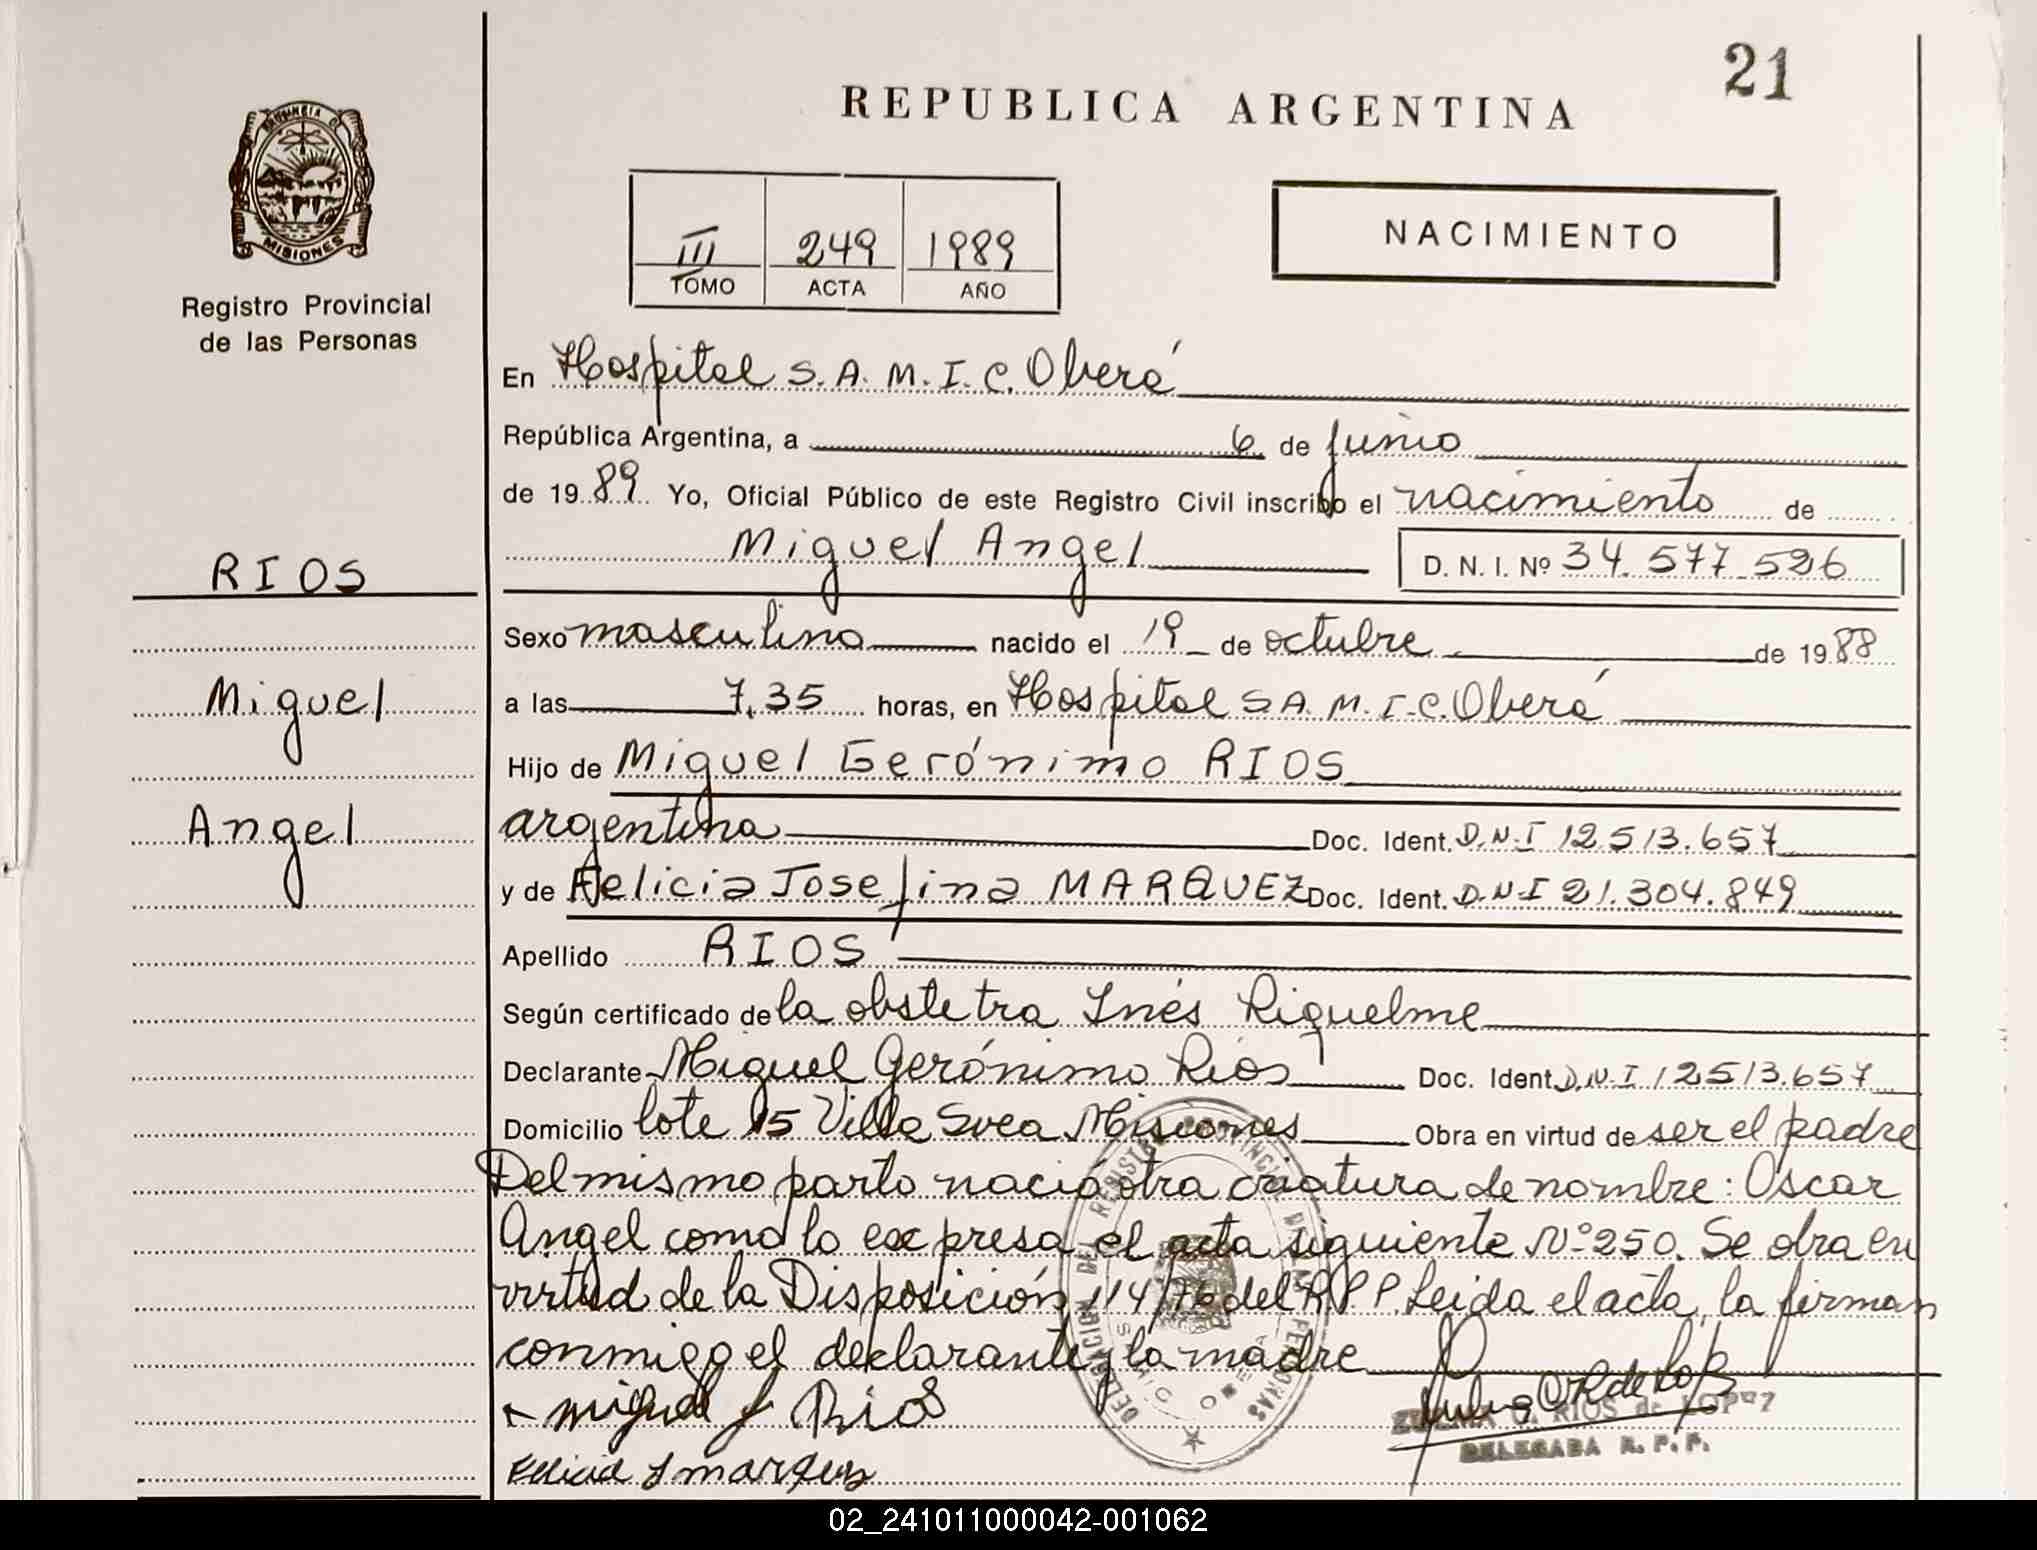 21
REPUBLICA ARGENTINA
PROVINCIA DE
MISIONES
Registro Provincial
de las Personas
III 249 1989
TOMO ACTA AÑO
NACIMIENTO
En Hospital S.A.M.I.C. Oberá
República Argentina, a 6 de junio
de 1989 Yo, Oficial Público de este Registro Civil inscribo el nacimiento de
Miguel Angel D.N.I. Nº 34.577.526
RIOS
Miguel
Angel
Sexo masculino nacido el 19 de octubre de 1988
a las 7,35 horas, en Hospital S.A.M.I.C. Oberá
Hijo de Miguel Gerónimo RIOS
argentina Doc. Ident. D.N.I 12.513.657
y de Felicia Josefina MARQUEZ Doc. Ident. D.N.I 21.304.849
Apellido RIOS
Según certificado de la obstetra Inés Riquelme
Declarante Miguel Gerónimo Rios Doc. Ident. D.N.I 12513.657
Domicilio lote 15 Villa Svea Misiones Obra en virtud de ser el padre
Del mismo parto nació otra criatura de nombre: Oscar
Angel como lo expresa el acta siguiente Nº 250. Se obra en
virtud de la Disposición 114/76 del R.P.P. Leida el acta, la firman
conmigo el declarante y la madre
miguel J Rios
Felicia J marquez
RIOS de LOPEZ
DELEGADA R.P.P.
02_241011000042-001062